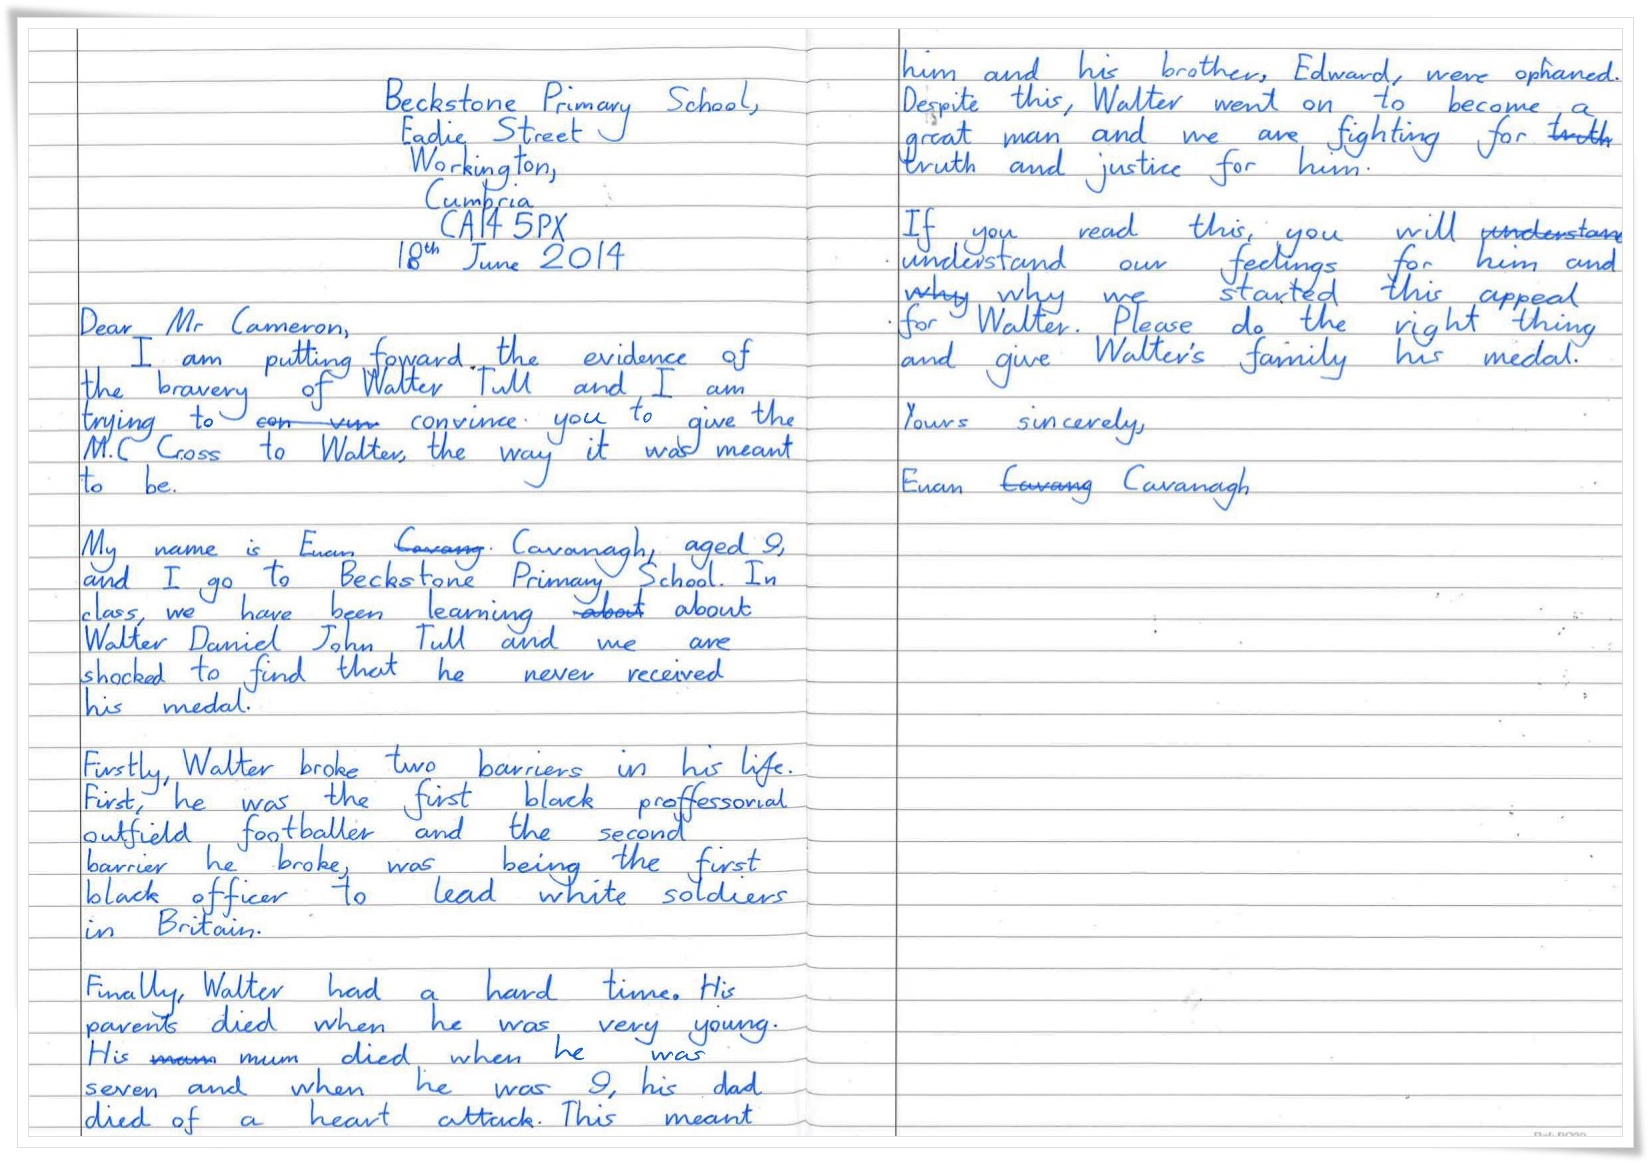 Beckstone Primary School,
Eadie Street
Workington,
Cumbria
CA14 5PX
18th June 2014
Dear Mr Cameron,
I am putting foward the evidence of
the bravery of Walter Tull and I am
trying to con vin convince you to give the
M.C Cross to Walter, the way it was meant
to be.
My name is Euan Cavang Cavanagh, aged 9,
and I go to Beckstone Primary School. In
class, we have been learning about about
Walter Daniel John Tull and we are
shocked to find that he never received
his medal.
Firstly, Walter broke two barriers in his life.
First, he was the first black proffessorial
outfield footballer and the second
barrier he broke, was being the first
black officer to lead white soldiers
in Britain.
Finally, Walter had a hard time. His
parents died when he was very young.
His mam mum died when he was
seven and when he was 9, his dad
died of a heart attack. This meant
him and his brother, Edward, were ophaned.
Despite this, Walter went on to become a
great man and we are fighting for truth
truth and justice for him.
If you read this, you will understan
understand our feelings for him and
why why we started this appeal
for Walter. Please do the right thing
and give Walter's family his medal.
Yours sincerely,
Euan Cavang Cavanagh